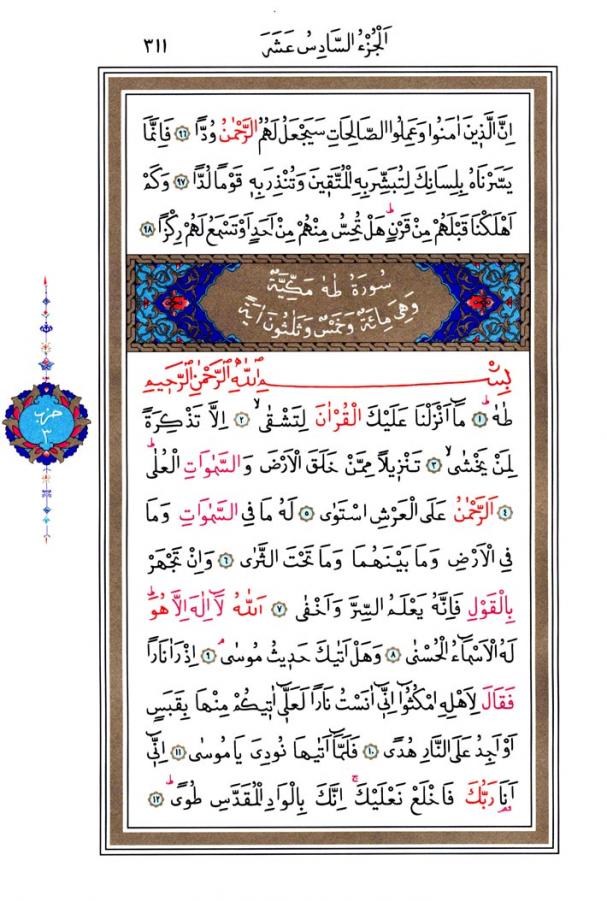 اَلْجُزْءُ السَّادِسُ عَشَرَ
٣١١
اِنَّ الَّذ۪ينَ اٰمَنُوا وَعَمِلُوا الصَّالِحَاتِ سَيَجْعَلُ لَهُمُ الرَّحْمٰنُ وُدًّا ﴿٩٦﴾ فَاِنَّمَا
يَسَّرْنَاهُ بِلِسَانِكَ لِتُبَشِّرَ بِهِ الْمُتَّق۪ينَ وَتُنْذِرَ بِه۪ قَوْمًا لُدًّا ﴿٩٧﴾ وَكَمْ
اَهْلَكْنَا قَبْلَهُمْ مِنْ قَرْنٍۜ هَلْ تُحِسُّ مِنْهُمْ مِنْ اَحَدٍ اَوْ تَسْمَعُ لَهُمْ رِكْزًا ﴿٩٨﴾
سُورَةُ طٰهٰ مَكِّيَّةٌ
وَهِىَ مِائَةٌ وَخَمْسٌ وَثَلٰثُونَ اٰيَةً
بِسْمِ اللّٰهِ الرَّحْمٰنِ الرَّح۪يمِ
طٰهٰۜ ﴿١﴾ مَٓا اَنْزَلْنَا عَلَيْكَ الْقُرْاٰنَ لِتَشْقٰىۙ ﴿٢﴾ اِلَّا تَذْكِرَةً
لِمَنْ يَخْشٰىۙ ﴿٣﴾ تَنْز۪يلًا مِمَّنْ خَلَقَ الْاَرْضَ وَالسَّمٰوَاتِ الْعُلٰىۜ
﴿٤﴾ اَلرَّحْمٰنُ عَلَى الْعَرْشِ اسْتَوٰى ﴿٥﴾ لَهُ مَا فِي السَّمٰوَاتِ وَمَا
فِي الْاَرْضِ وَمَا بَيْنَهُمَا وَمَا تَحْتَ الثَّرٰى ﴿٦﴾ وَاِنْ تَجْهَرْ
بِالْقَوْلِ فَاِنَّهُ يَعْلَمُ السِّرَّ وَاَخْفٰى ﴿٧﴾ اَللّٰهُ لَٓا اِلٰهَ اِلَّا هُوَۜ
لَهُ الْاَسْمَٓاءُ الْحُسْنٰى ﴿٨﴾ وَهَلْ اَتٰيكَ حَد۪يثُ مُوسٰىۢ ﴿٩﴾ اِذْ رَاٰ نَارًا
فَقَالَ لِاَهْلِهِ امْكُثُٓوا اِنّ۪ٓي اٰنَسْتُ نَارًا لَعَلّ۪ٓي اٰت۪يكُمْ مِنْهَا بِقَبَسٍ
اَوْ اَجِدُ عَلَى النَّارِ هُدًى ﴿١٠﴾ فَلَمَّٓا اَتٰيهَا نُودِيَ يَا مُوسٰى ﴿١١﴾ اِنّ۪ٓي
اَنَا رَبُّكَ فَاخْلَعْ نَعْلَيْكَۚ اِنَّكَ بِالْوَادِ الْمُقَدَّسِ طُوًىۜ ﴿١٢﴾
حزب
٣